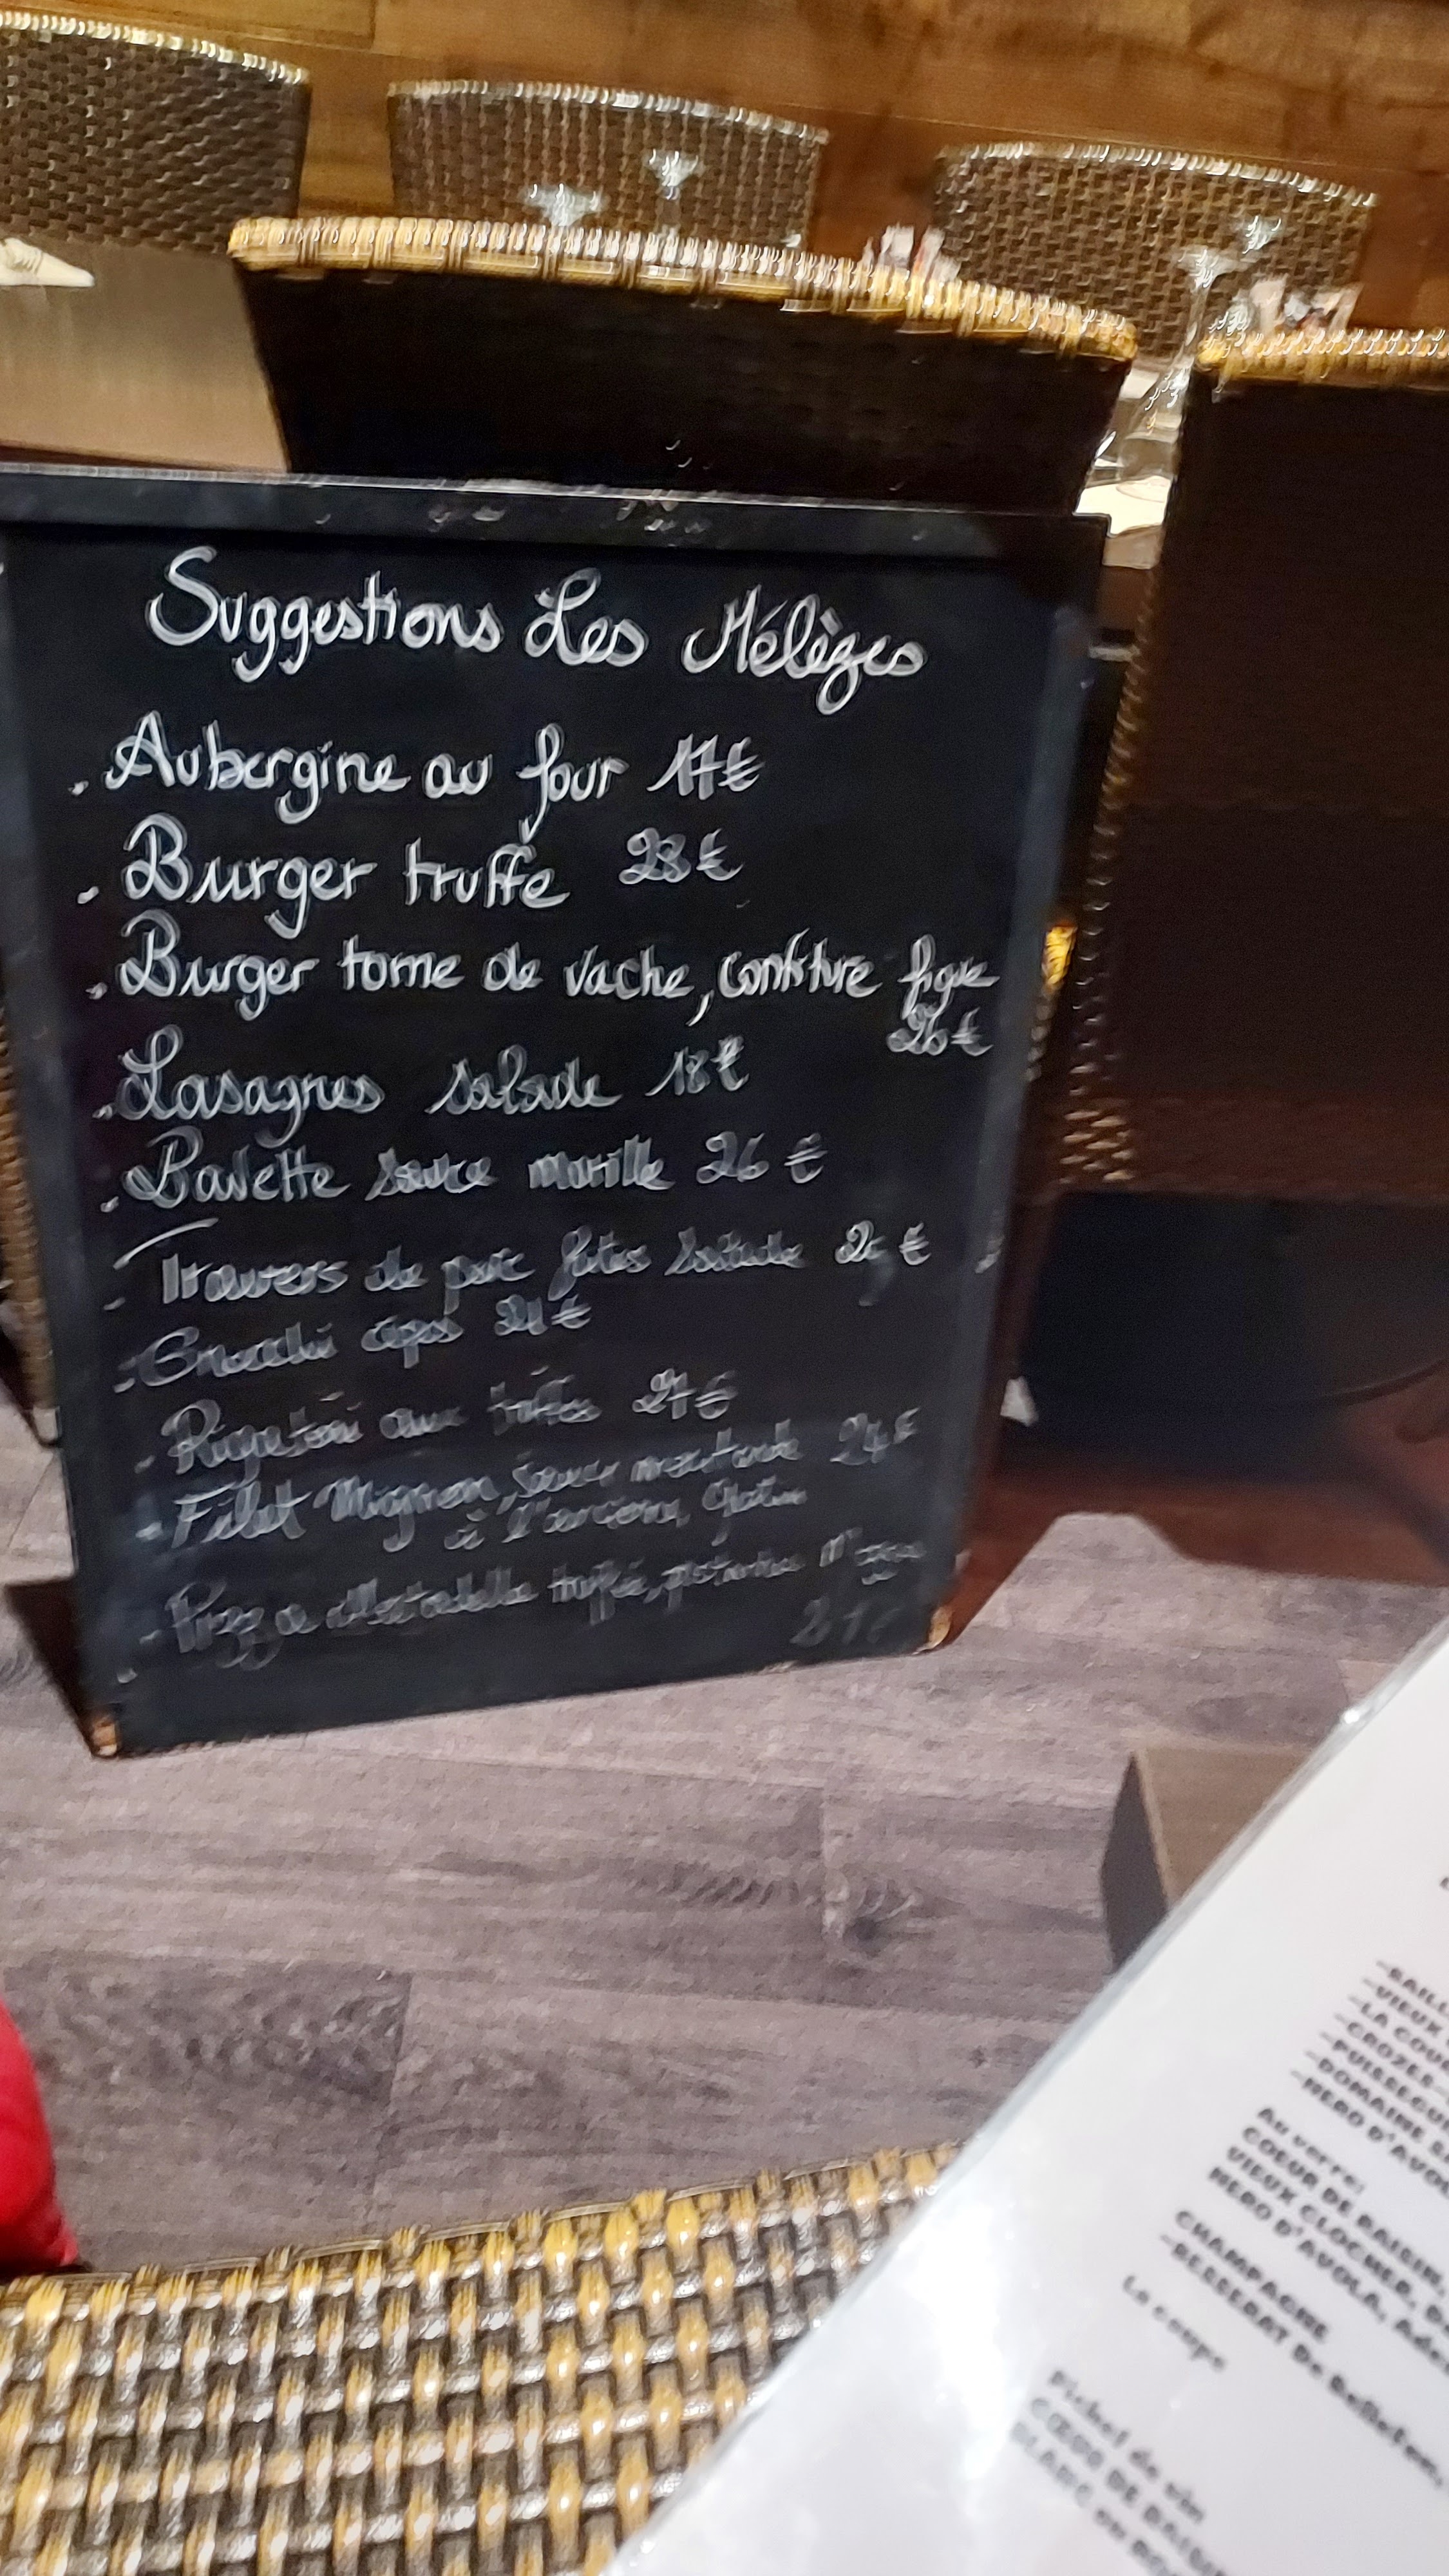 Suggestions Les Mélèzes
. Aubergine au four 17€
. Burger truffe 23€
. Burger tome de vache, confiture figue
26€
. Lasagnes salade 18€
. Bavette sauce morille 26€
. Travers de porc frites salade €
. Gnocchi cèpes 21€
. Rigatoni aux truffes 27€
. Filet Mignon, sauce moutarde 24€
à l'ancienne, gratin
. Pizza Mortadelle truffée, pistaches
21€
-VIEUX
-LA COU
-CROZES-
-PUISSEGUI
-DOMAINE
-NERO D'AVOL
Au verre:
COEUR DE RAISIN,
VIEUX CLOCHER,
NERO D'AVOLA,
CHAMPAGNE
La coupe
Pichet de vin
COEUR DE RAISI
BLANC ou